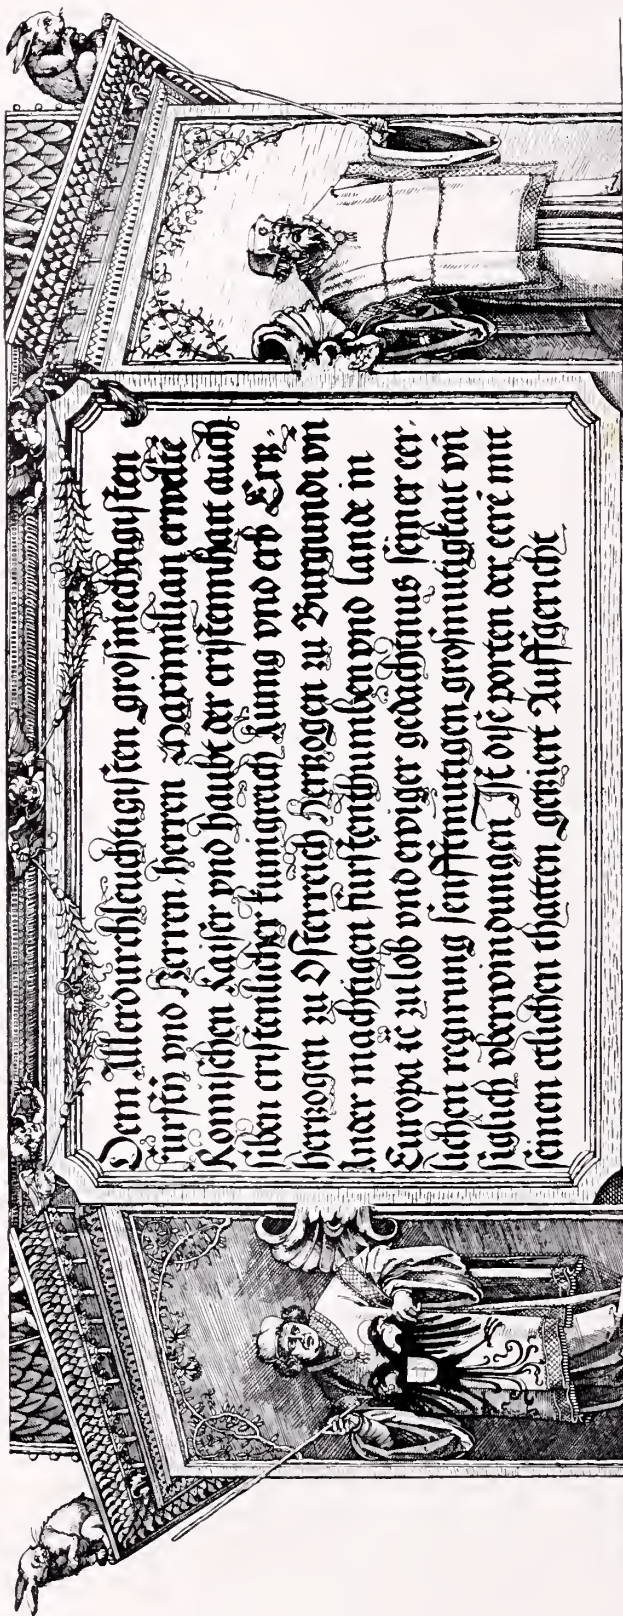 Dem Allerdurchleuchtigisten großmechtigisten
fursten vnd Herren herren Maximilian erwelte
Romischen Kaiser vnd haubt der cristennhait auch
siben cristenlicher kunigreich kunig vnd erb Ertz-
hertzogen zu Osterreich hertzogen zu Burgundi vn̄
Ander mächtigen furstenthumben vnd lande in
Europa ⁊c zu lob vnd ewiger gedächtnus seiner eer-
lichen regirung senfftmutigen großmutigkait vn̄
siglich vberwindungen Ist dise porten der eere mit
seinen etlichen thatten getziert Auffgericht